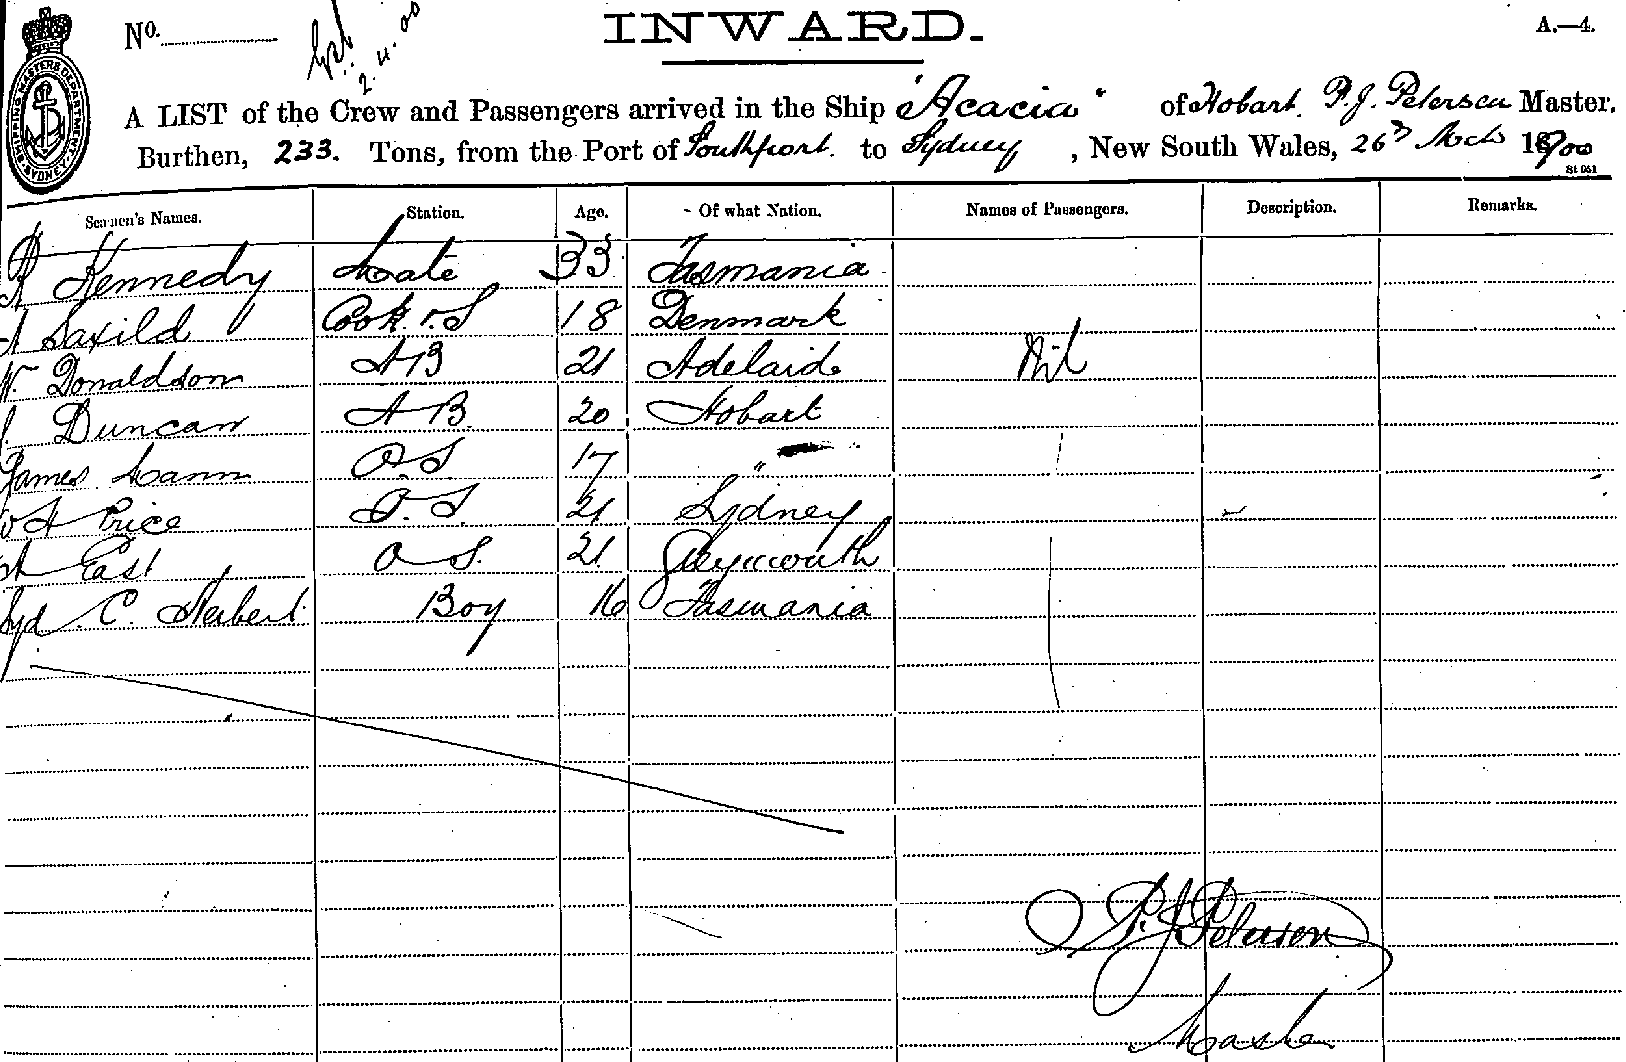 No.
2.4.00
INWARD.
A.—4.
SHIPPING MASTERS DEPARTMENT SYDNEY
A LIST of the Crew and Passengers arrived in the Ship "Acacia" of Hobart. P. J. Petersen Master,
Burthen, 233. Tons, from the Port of Southport. to Sydney, New South Wales, 26th Mch 1900
St 051
Seamen's Names. Station. Age. Of what Nation. Names of Passengers. Description. Remarks.
Kennedy Mate 33 Tasmania
A Saxild Cook & S 18 Denmark
W. Donaldson AB 21 Adelaide Nil
Duncan AB 20 Hobart
James Mann O.S 17 "
W H Price O.S. 21 Sydney
East O S. 21 Greymouth
Syd. C. Herbert Boy 16 Tasmania
P. J Petersen
Master